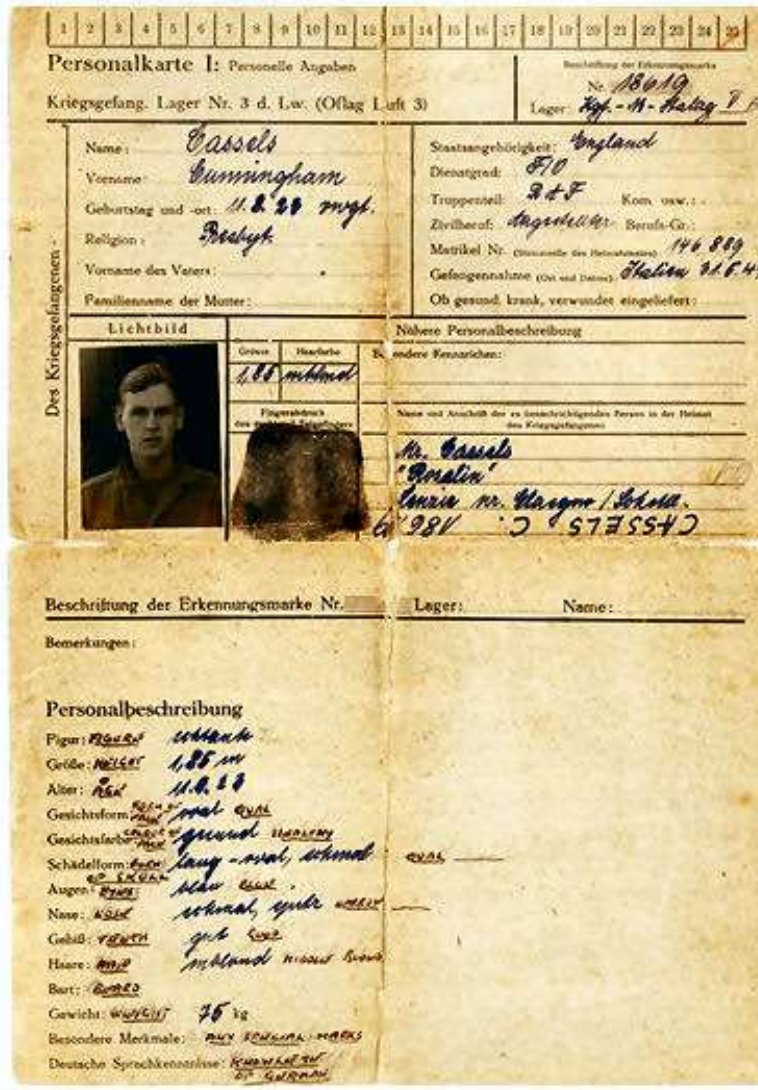 1 2 3 4 5 6 7 8 9 10 11 12 13 14 15 16 17 18 19 20 21 22 23 24 25
Personalkarte I: Personelle Angaben
Kriegsgefang. Lager Nr. 3 d. Lw. (Oflag Luft 3)
Beschriftung der Erkennungsmarke
Nr. 18619
Lager: Kgf.-M-Stalag V
Des Kriegsgefangenen
Name: Cassels
Vorname: Cunningham
Geburtstag und -ort:
Religion: Presbyt.
Vorname des Vaters:
Familienname der Mutter:
Staatsangehörigkeit: England
Dienstgrad: F/O
Truppenteil: RAF Kom. usw.:
Zivilberuf: Angestellter Berufs-Gr.:
Matrikel Nr. (Stammrolle des Heimatstaates) 146889
Gefangennahme (Ort und Datum): Italien
Ob gesund, krank, verwundet eingeliefert:
Lichtbild
Nähere Personalbeschreibung
Grösse Haarfarbe Besondere Kennzeichen:
1,85 mblond
Fingerabdruck
Name und Anschrift der zu benachrichtigenden Person in der Heimat
des Kriegsgefangenen
Mr. Cassels
"Rosslin"
Lenzie nr. Glasgow / Schottl.
CASSELS C. 18619
Beschriftung der Erkennungsmarke Nr. Lager: Name:
Bemerkungen:
Personalbeschreibung
Figur: FIGURE schlank
Größe: HEIGHT 1,85 m
Alter: AGE
Gesichtsform: oval OVAL
Gesichtsfarbe: gesund HEALTHY
Schädelform: FORM OF SKULL lang-oval, schmal OVAL
Augen: EYES blau BLUE
Nase: NOSE schmal,
Gebiß: TEETH gut GOOD
Haare: HAIR mblond MIDDLE BLOND
Bart: BEARD
Gewicht: WEIGHT 75 kg
Besondere Merkmale: ANY SPECIAL MARKS
Deutsche Sprachkenntnisse: KNOWLEDGE
OF GERMAN